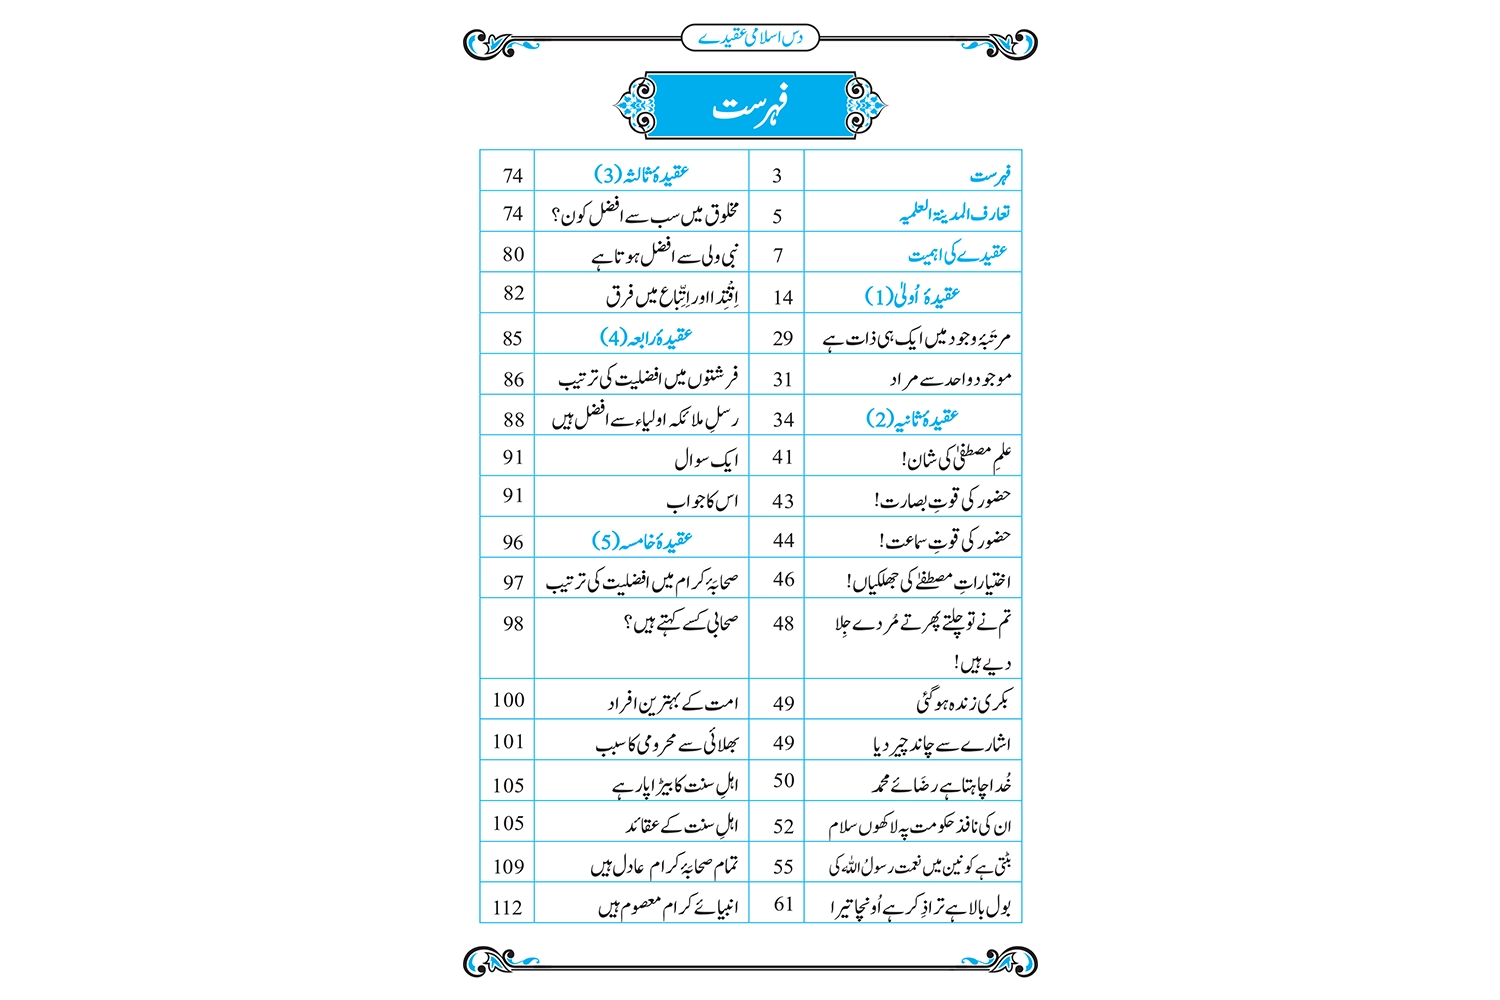 دس اسلامی عقیدے
فہرست
فہرست 3
تعارف المدینۃ العلمیہ 5
عقیدے کی اہمیت 7
عقیدۂ اُولیٰ (1) 14
مرتبۂ وجود میں ایک ہی ذات ہے 29
موجود واحد سے مراد 31
عقیدۂ ثانیہ (2) 34
علمِ مصطفیٰ کی شان! 41
حضور کی قوتِ بصارت! 43
حضور کی قوتِ سماعت! 44
اختیاراتِ مصطفےٰ کی جھلکیاں! 46
تم نے تو چلتے پھرتے مُردے جِلا 48
دیے ہیں!
بکری زندہ ہوگئی 49
اشارے سے چاند چیر دیا 49
خُدا چاہتا ہے رضَائے محمد 50
ان کی نافذ حکومت پہ لاکھوں سلام 52
بٹتی ہے کونین میں نعمت رسولُ اللہ کی 55
بول بالا ہے ترا ذِکر ہے اُونچا تیرا 61
عقیدۂ ثالثہ (3) 74
مخلوق میں سب سے افضل کون؟ 74
نبی ولی سے افضل ہوتا ہے 80
اِقْتِدا اور اِتِّباع میں فرق 82
عقیدۂ رابعہ (4) 85
فرشتوں میں افضلیت کی ترتیب 86
رسلِ ملائکہ اولیاء سے افضل ہیں 88
ایک سوال 91
اس کا جواب 91
عقیدۂ خامسہ (5) 96
صحابۂ کرام میں افضلیت کی ترتیب 97
صحابی کسے کہتے ہیں؟ 98
امت کے بہترین افراد 100
بھلائی سے محرومی کا سبب 101
اہلِ سنت کا بیڑا پار ہے 105
اہلِ سنت کے عقائد 105
تمام صحابَۂ کرام عادل ہیں 109
انبیائے کرام معصوم ہیں 112